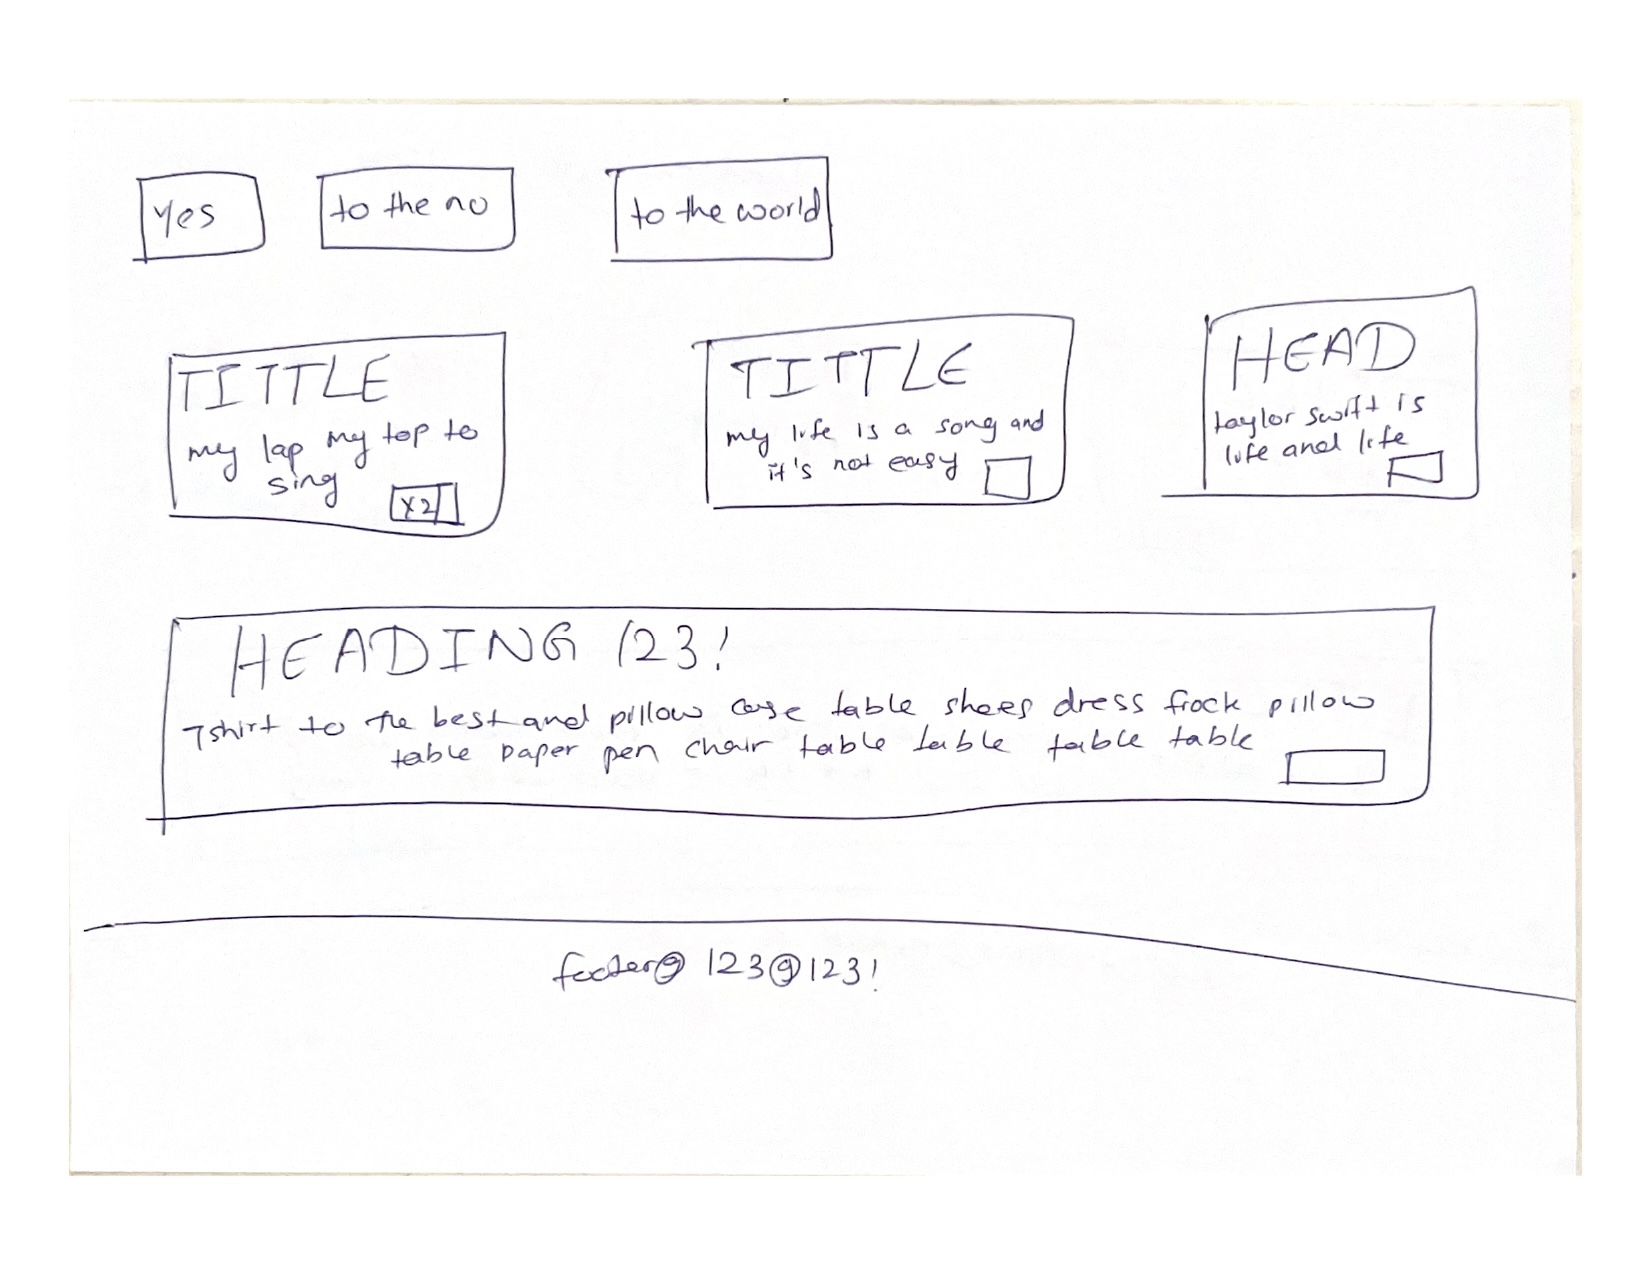 yes
to the no
to the world
TITTLE
my lap my top to
sing
x2
TITTLE
my life is a song and
it's not easy
HEAD
taylor swift is
life and life
HEADING 123!
Tshirt to the best and pillow case table shoes dress frock pillow
table paper pen chair table table table table
footer@ 123@123!